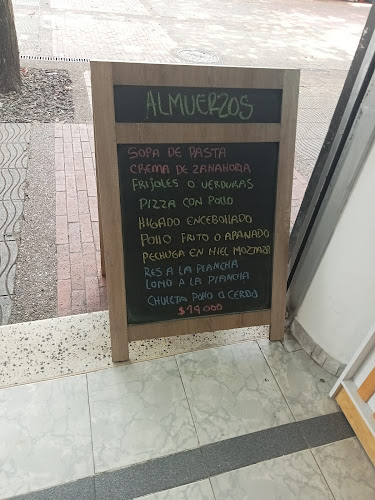 ALMUERZOS
SOPA DE PASTA
CREMA DE ZANAHORIA
FRIJOLES O VERDURAS
PIZZA CON POLLO
HIGADO ENCEBOLLADO
POLLO FRITO O APANADO
PECHUGA EN MIEL MOZTAZA
RES A LA PLANCHA
LOMO A LA PLANCHA
CHULETA POLLO O CERDO
$14000